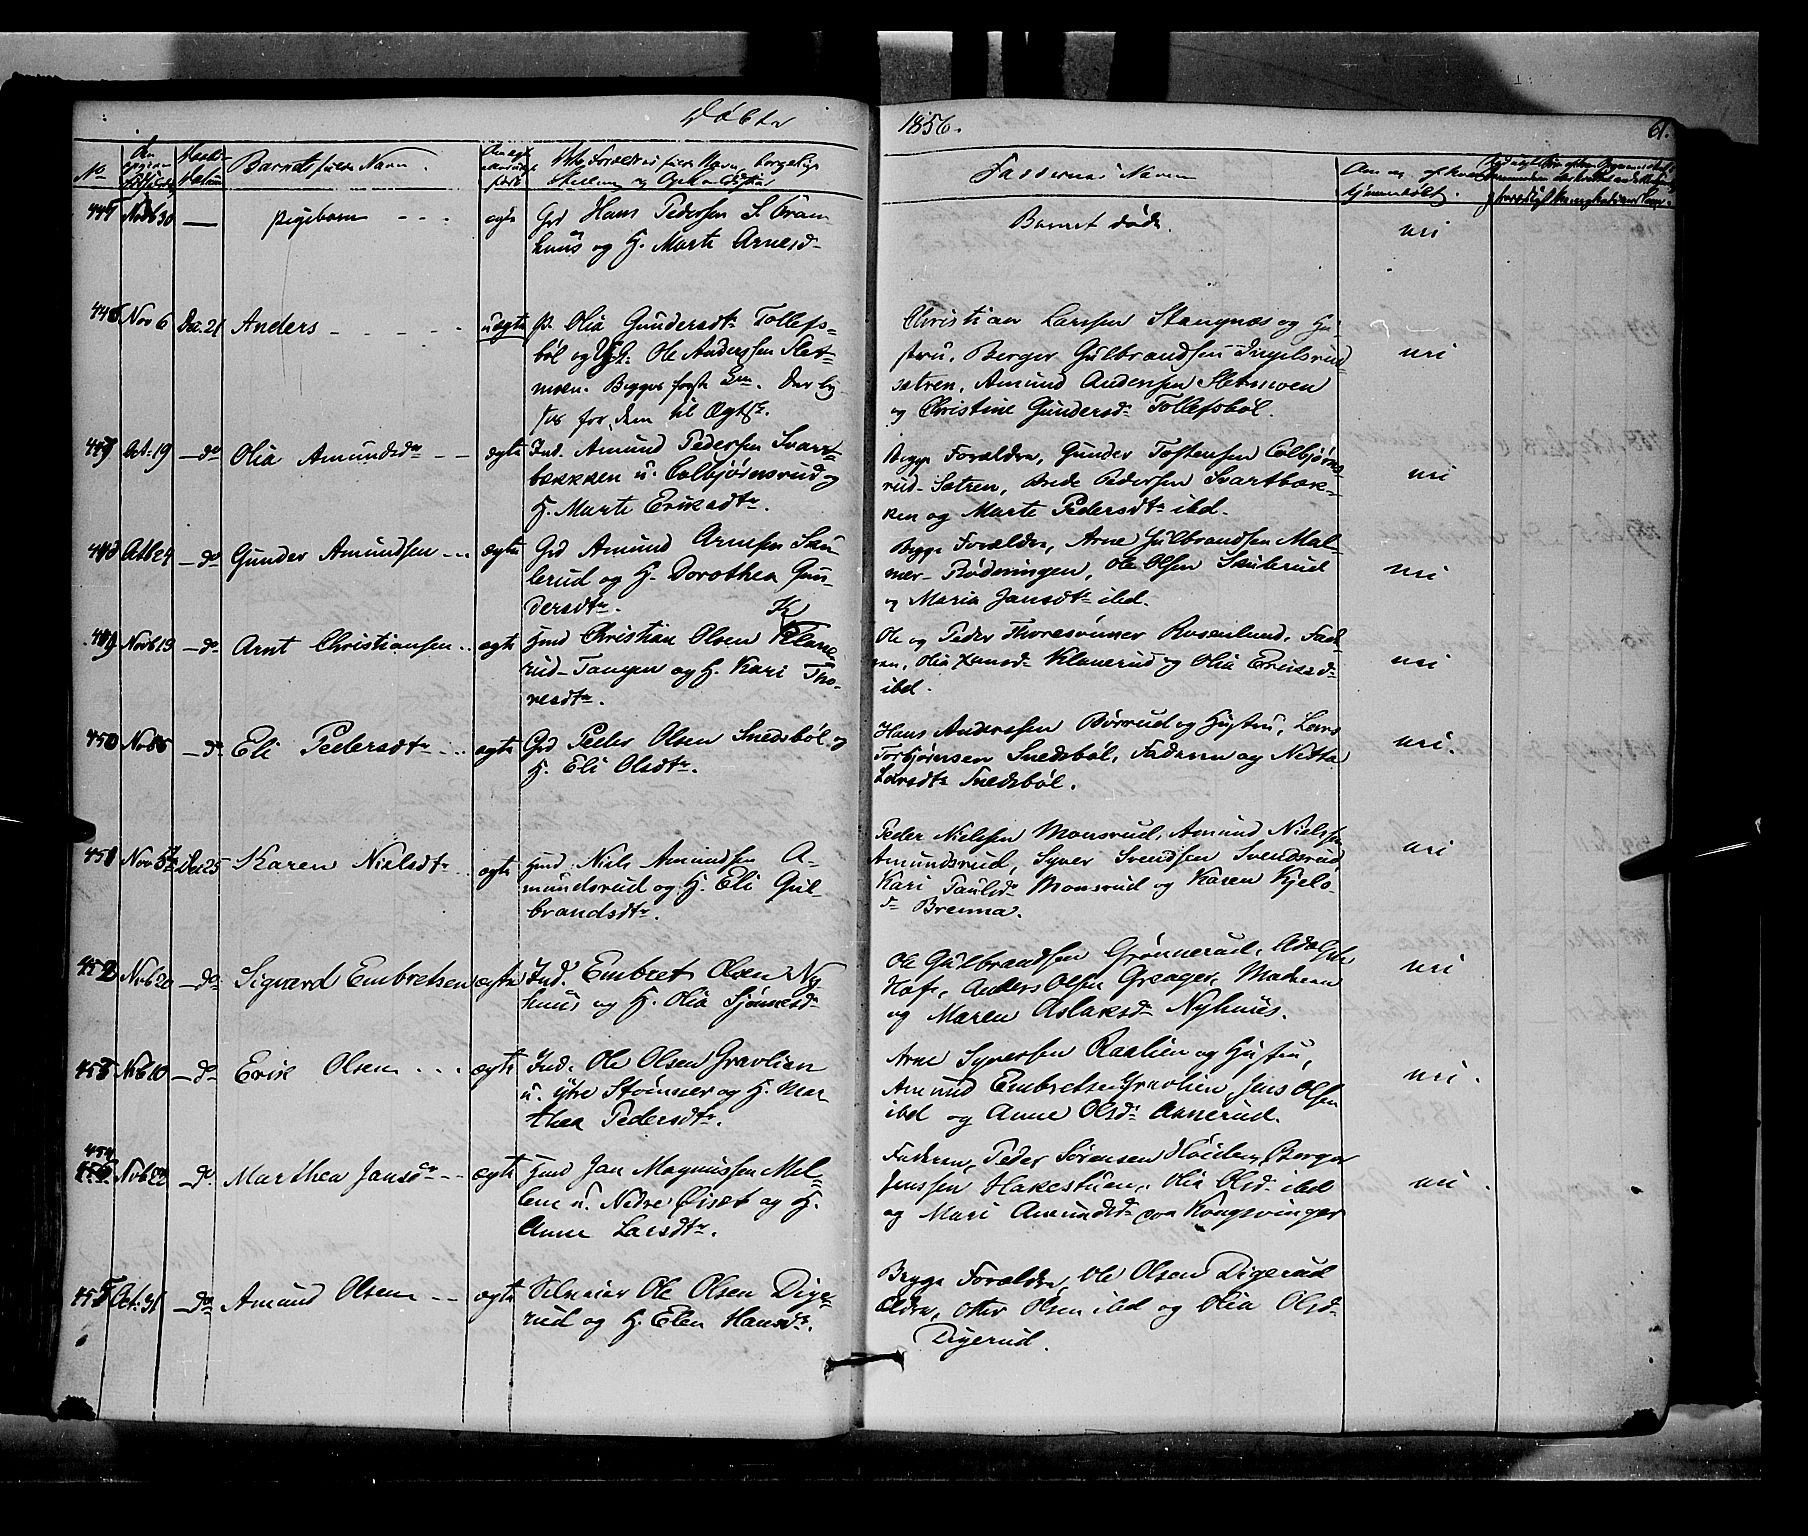 Døbte 1856. 61.
No Barnets fulde Navn. Faddernes Navne
Novb 30 — pigebarn - - - ægte Grd Hans Pedersen
huus og H. Marte Arnesd
Barnet døde. nei
446 Nov 6 Dec. 21 Anders - - - - uægte P. Olia Gundersdtr Tollefs-
bøl og Ole Anderssen Slet-
moen. Begges første
for dem til Ægtsk.
Christian Larssen Stangnæs og Hu-
stru, Berger Gulbrandsen Ingelsrud
sætren, Amund Andersen Sletmoen
og Christine Gundersd Tollefsbøl.
nei
Oct. 19 — do Olia Amundsdr - - ægte Ind. Amund Pedersen Svart-
bækken u. Colbjørnsrud og
H. Marte Eriksdtr.
Begge Forældre, Gunder Tostensen Colbjørns
rud-Sætren, Pedersen Svartbæk-
ken og Marte Pedersdtr ibd.
nei
Octb 24 — do Gunder Amundsen - - - ægte Grd Amund Arnesen Sku-
lerud og H. Dorothea Gun-
dersdtr.
Begge Forældre, Arne Gulbrandsen Mal-
mer-Røderingen, Ole Olsen Skulerud
og Maria Jansdtr ibd.
nei
449 Novb 19 — do Arnt Christiansen - - ægte Hmd Christian Olsen Klane-
rud-Tangen og H. Kari Tho-
resdtr.
Ole og Peder Thoresønner Rosenlund, Fade-
ren, Olia Jansd Klanerud og Olia Eriksd
ibd.
nei
450 Novb 6 — do Eli Pedersdtr - - - ægte Grd Peder Olsen Snedsbøl og
H. Eli Olsdtr.
Hans Anderssen Børrud og Hustru, Lars
Torbjørnsen Snedsbøl, Faderen og Netta
Larsdtr Snedsbøl.
nei.
451 Nov Dec 25 Karen Nielsdtr - ægte Hmd. Niels Amundsen A-
mundsrud og H. Eli Gul-
brandsdtr.
Peder Nielssen Monsrud, Amund Nielssen
Amundsrud, Syver Svendsen Svendsrud
Kari Paulsd Monsrud og Karen Kjels-
d Brenna.
nei
452 Novb 20 — do Sigvard Embretsen ægte Ind. Embret Olsen Ny-
huus og H. Olia
Ole Gulbrandsen Grønnerud,
Hofe, Anders Olsen Greager, Moderen
og Maren Aslaksd Nyhuus.
nei
453 Novb 10 — do Erik Olsen - - - ægte Ind. Ole Olsen Gravlien
u. ytre Stømner og H. Mar
thea Pedersdtr.
Arne Syversen Raalien og Hustru,
Amund Embretsen Gravlien, Jens Olsen
ibd og Anne Olsd Aanerud.
nei.
454 Novb 22 — do Marthea Jansdr - - ægte Hmd Jan Magnussen Mel-
lem u. Nedre Øiset og H.
Anne Larsdtr.
Faderen, Peder Sørensen Høiden, Berger
Jenssen Hakestuen, Olia Olsd ibd
og Mari Amundsd paa Kongsvinger
nei.
455 Oct. 31 — do Amund Olsen - - ægte Selveier Ole Olsen Dige-
rud og H. Elen Hansd.
Begge Forældre, Ole Olsen Digerud
Ældre, Otter Olsen ibd og Olia Olsd
Digerud.